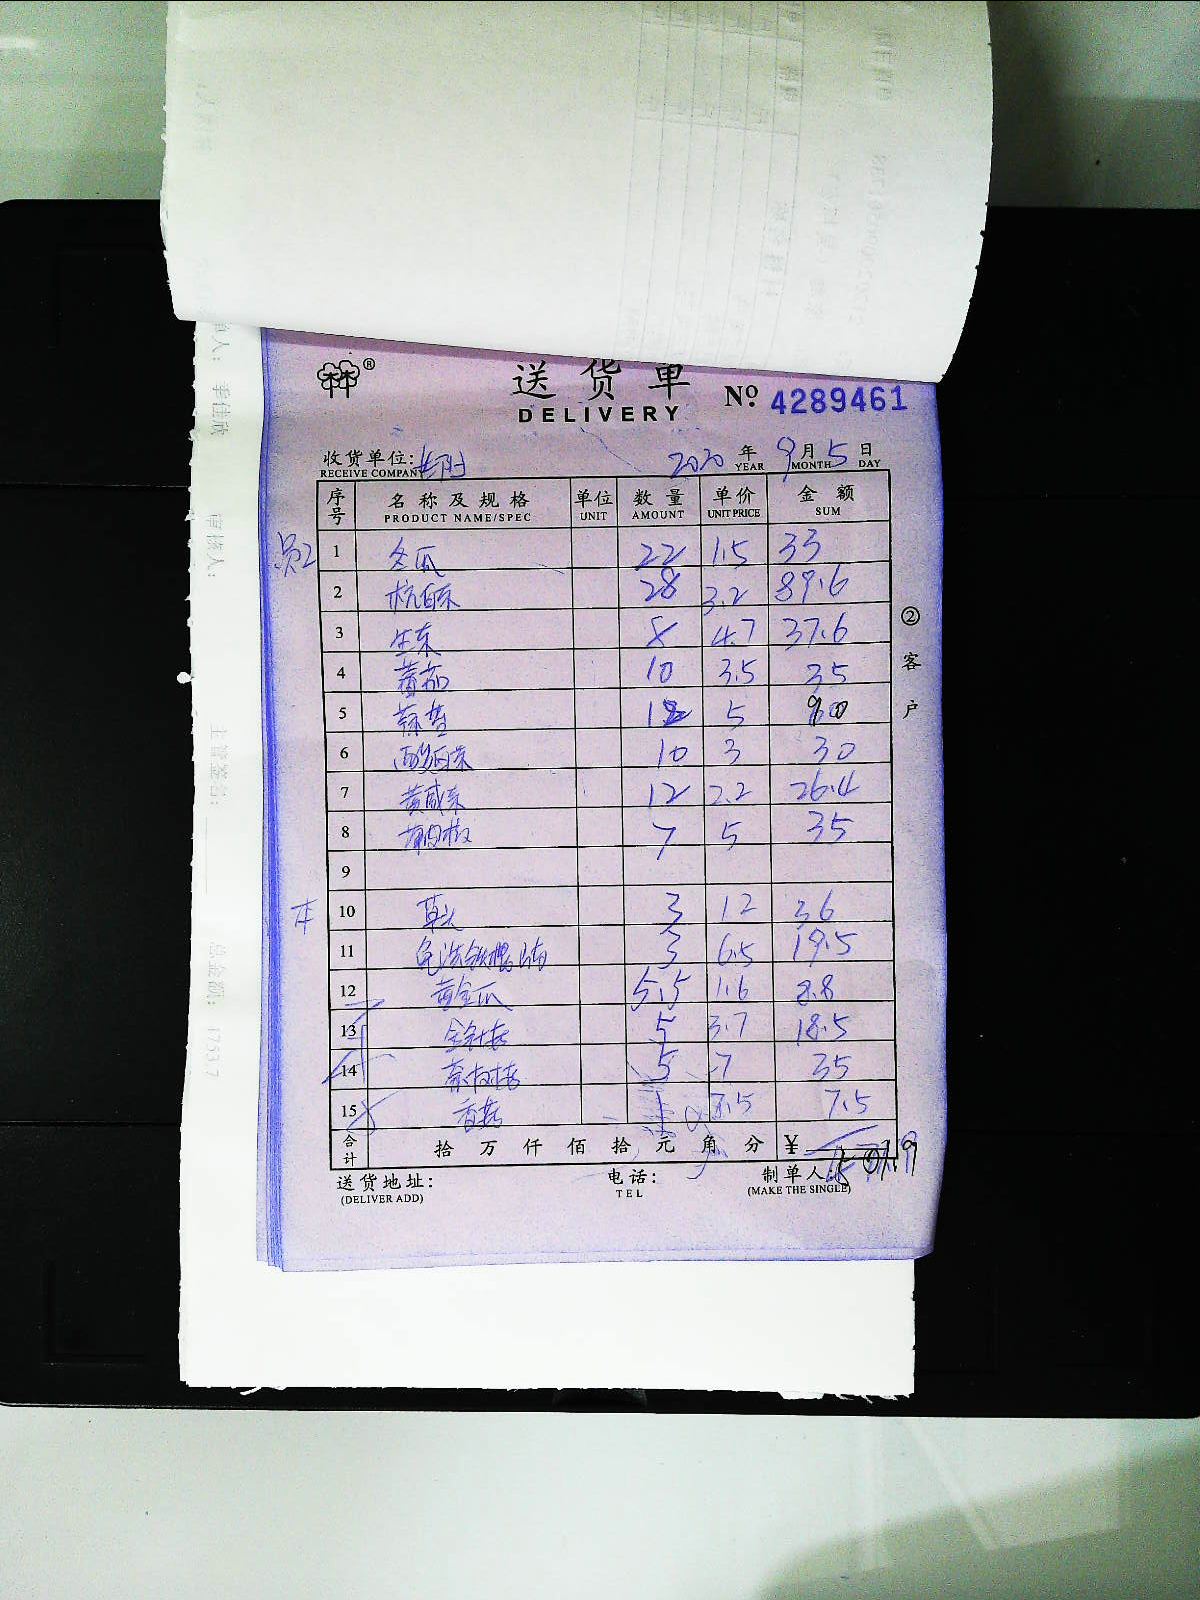 送货单
DELIVERY
№ 4289461
收货单位:
RECEIVE COMPANY
2020 年 9 月 5 日
YEAR MONTH DAY
序号 名称及规格 单位 数量 单价 金额
PRODUCT NAME/SPEC UNIT AMOUNT UNIT PRICE SUM
1 冬瓜 22 1.5 33
2 杭白菜 28 3.2 89.6
3 生菜 8 4.7 37.6
4 番茄 10 3.5 35
5 5
6 酸白菜 10 3 30
7 黄咸菜 12 2.2 26.4
8 7 5 35
9
本
10 草头 3 12 36
11 3 6.5 19.5
12 黄金瓜 5.5 1.6 8.8
13 金针菇 5 3.7 18.5
14 茶树菇 5 7 35
15 香菇 1 7.5 7.5
合计 拾万仟佰拾元角分 ¥
②客户
送货地址:
(DELIVER ADD)
电话:
TEL
制单人:
(MAKE THE SINGLE)
李佳欣
审核人:
主管签名:
总金额: 1753.7